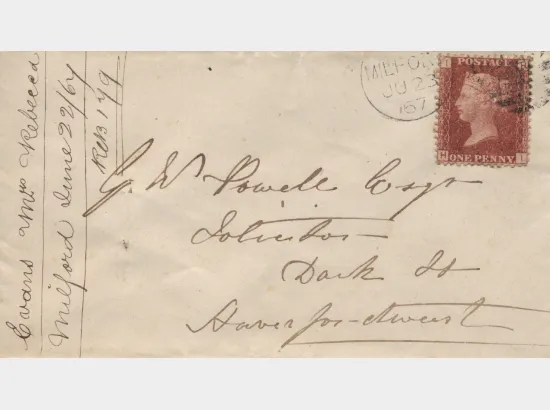 Evans Mrs Rebecca
Milford June 22/67
MILFOR
JU 23
67
POSTAGE
ONE PENNY
G. W. Powell Esqr
Solicitor
Dark St
Haverfordwest